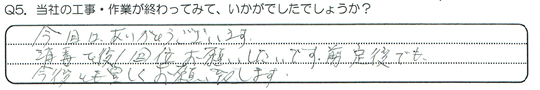 Q5. 当社の工事・作業が終わってみて、いかがでしたでしょうか？
今回は、ありがとうございます。
消毒を後1回位お願いしたいです。剪定後でも、
今後とも宜しくお願い致します。